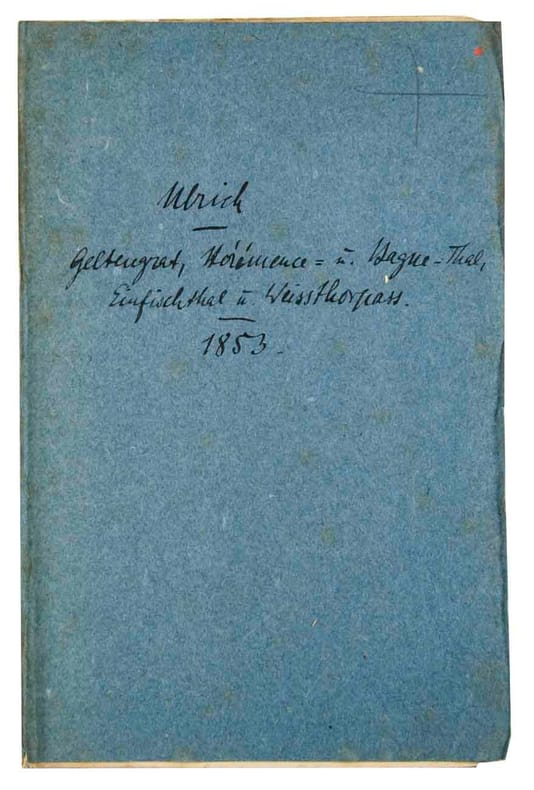 Ulrich
Geltengrat, Hérémence= u. Bagne-Thal,
Einfischthal u. Weissthorpass.
1853.